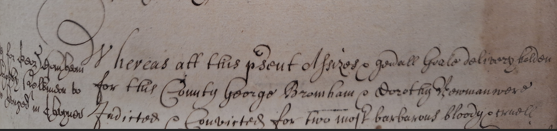 Whereas att this psent Assizes & genall Goale delivery holden
for this County George Bromham & Dorothy Newman were
Indicted & Convicted for two most barbarous bloody & cruell